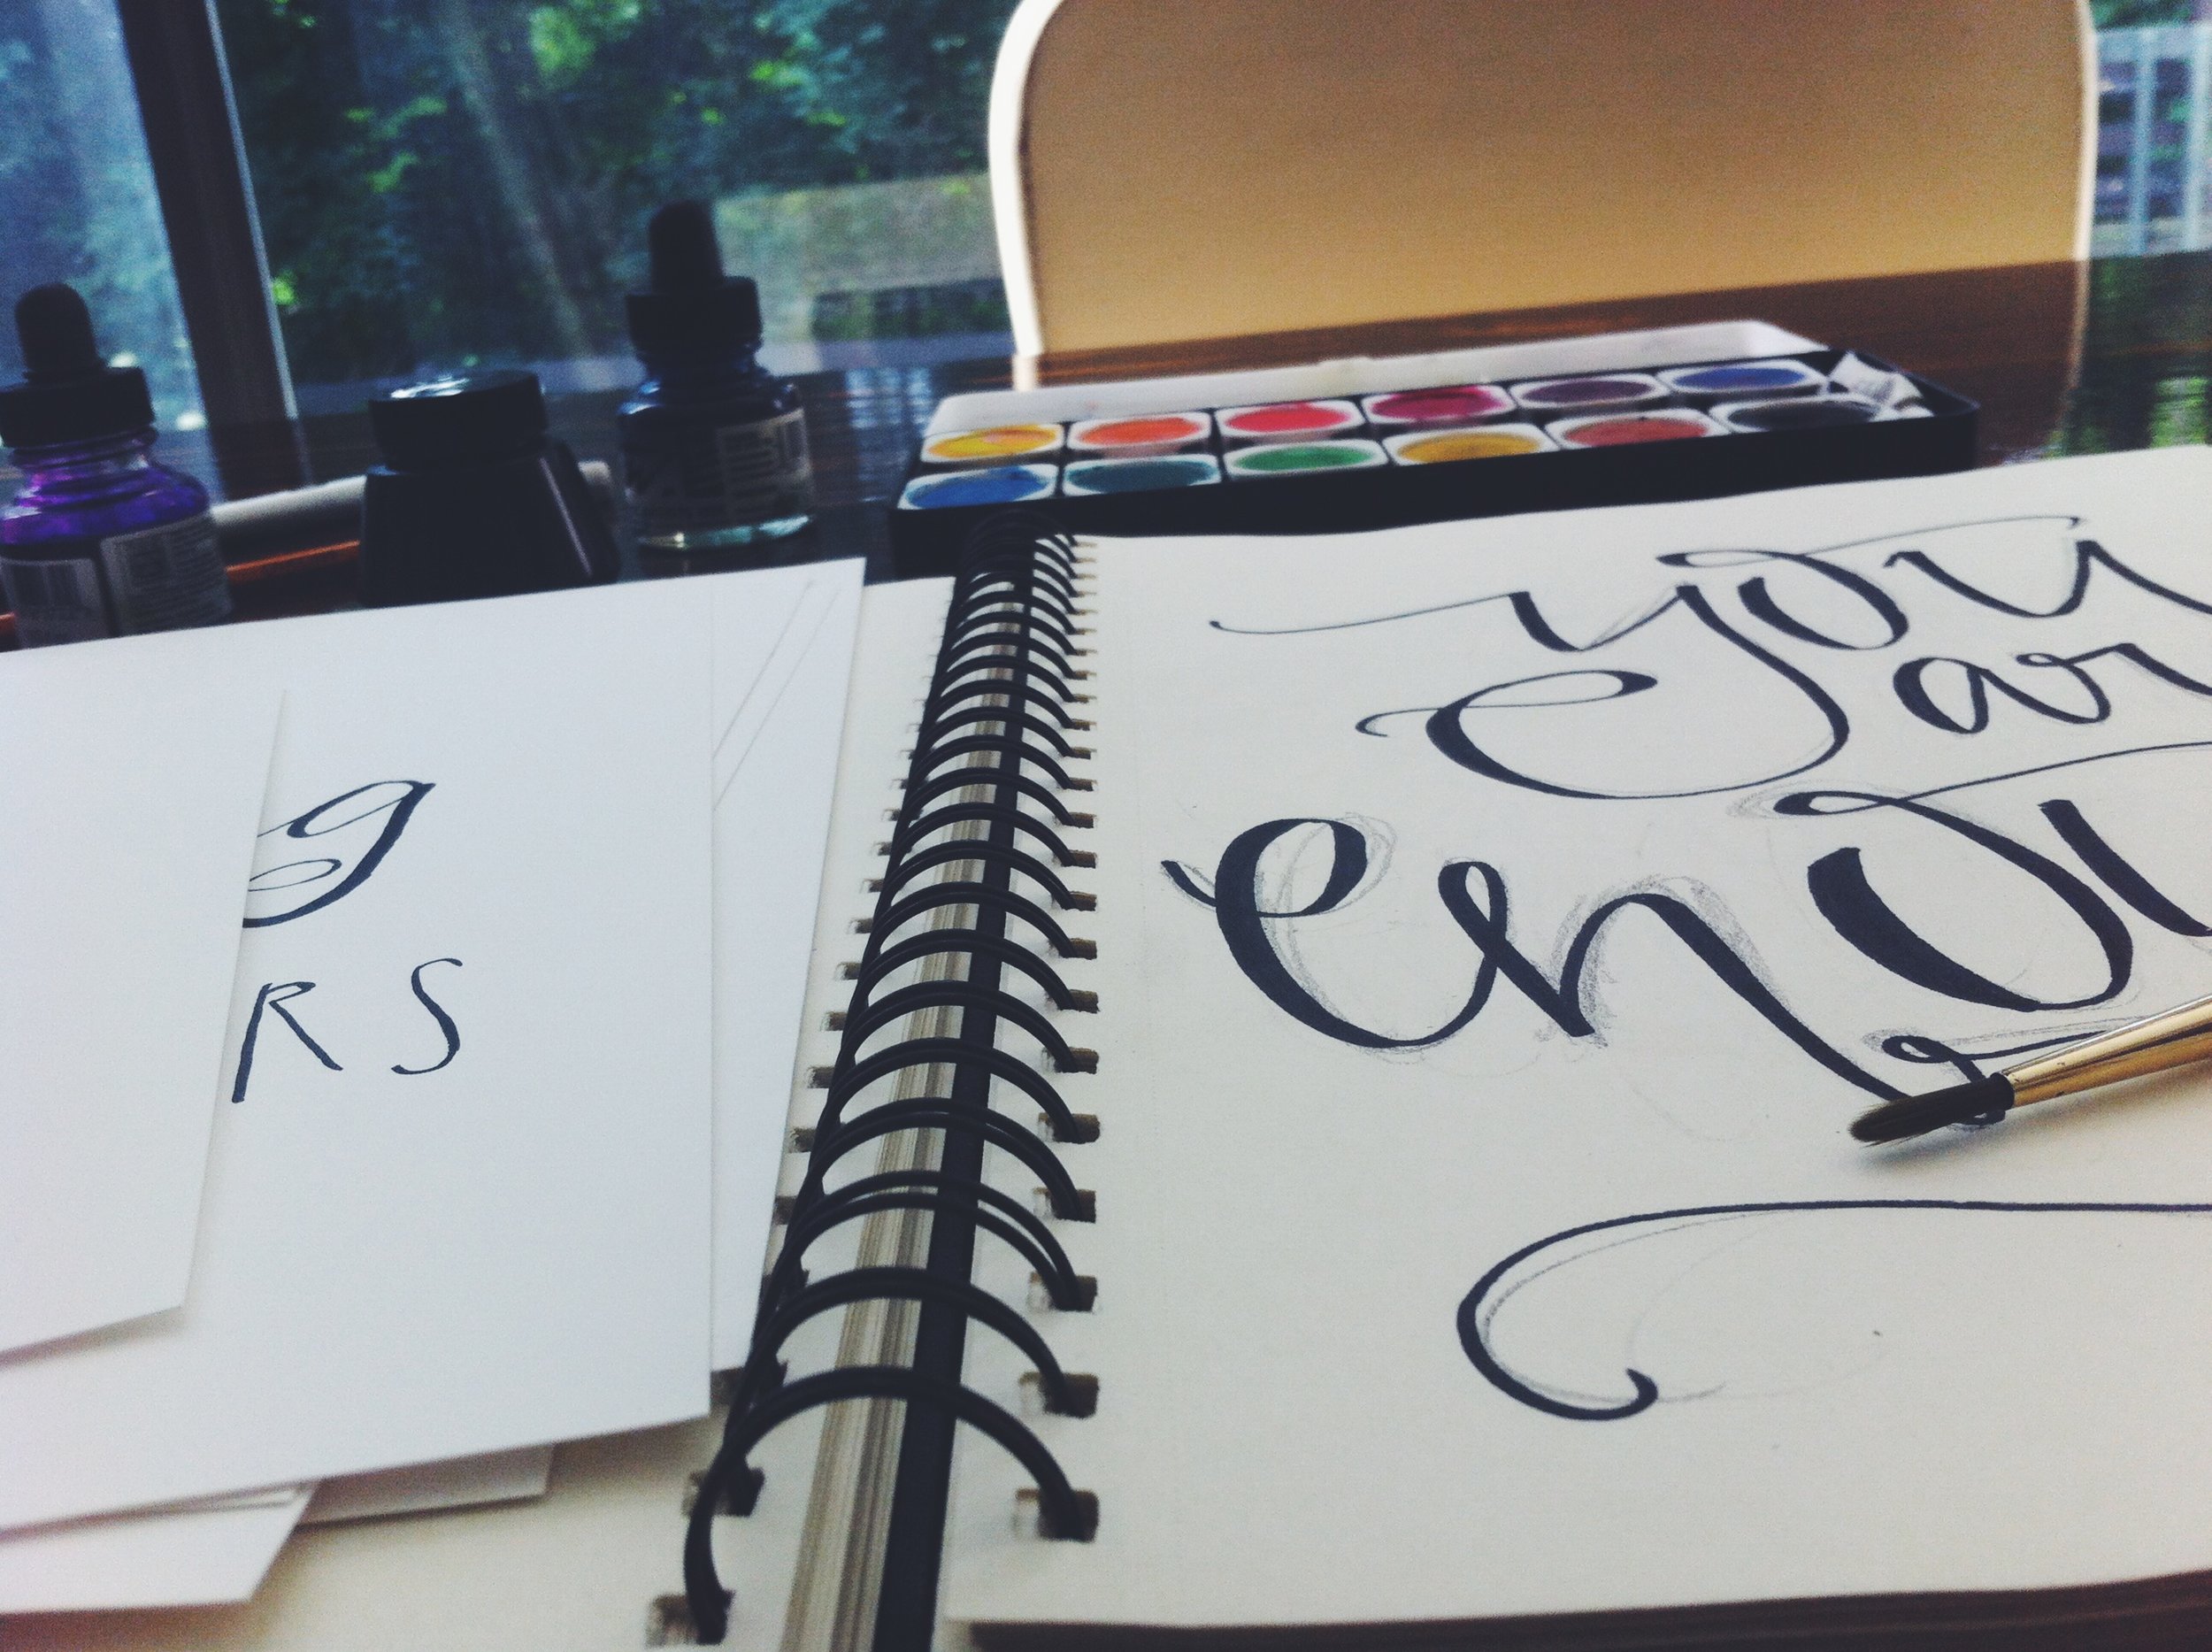 g
RS
you
ar
eno